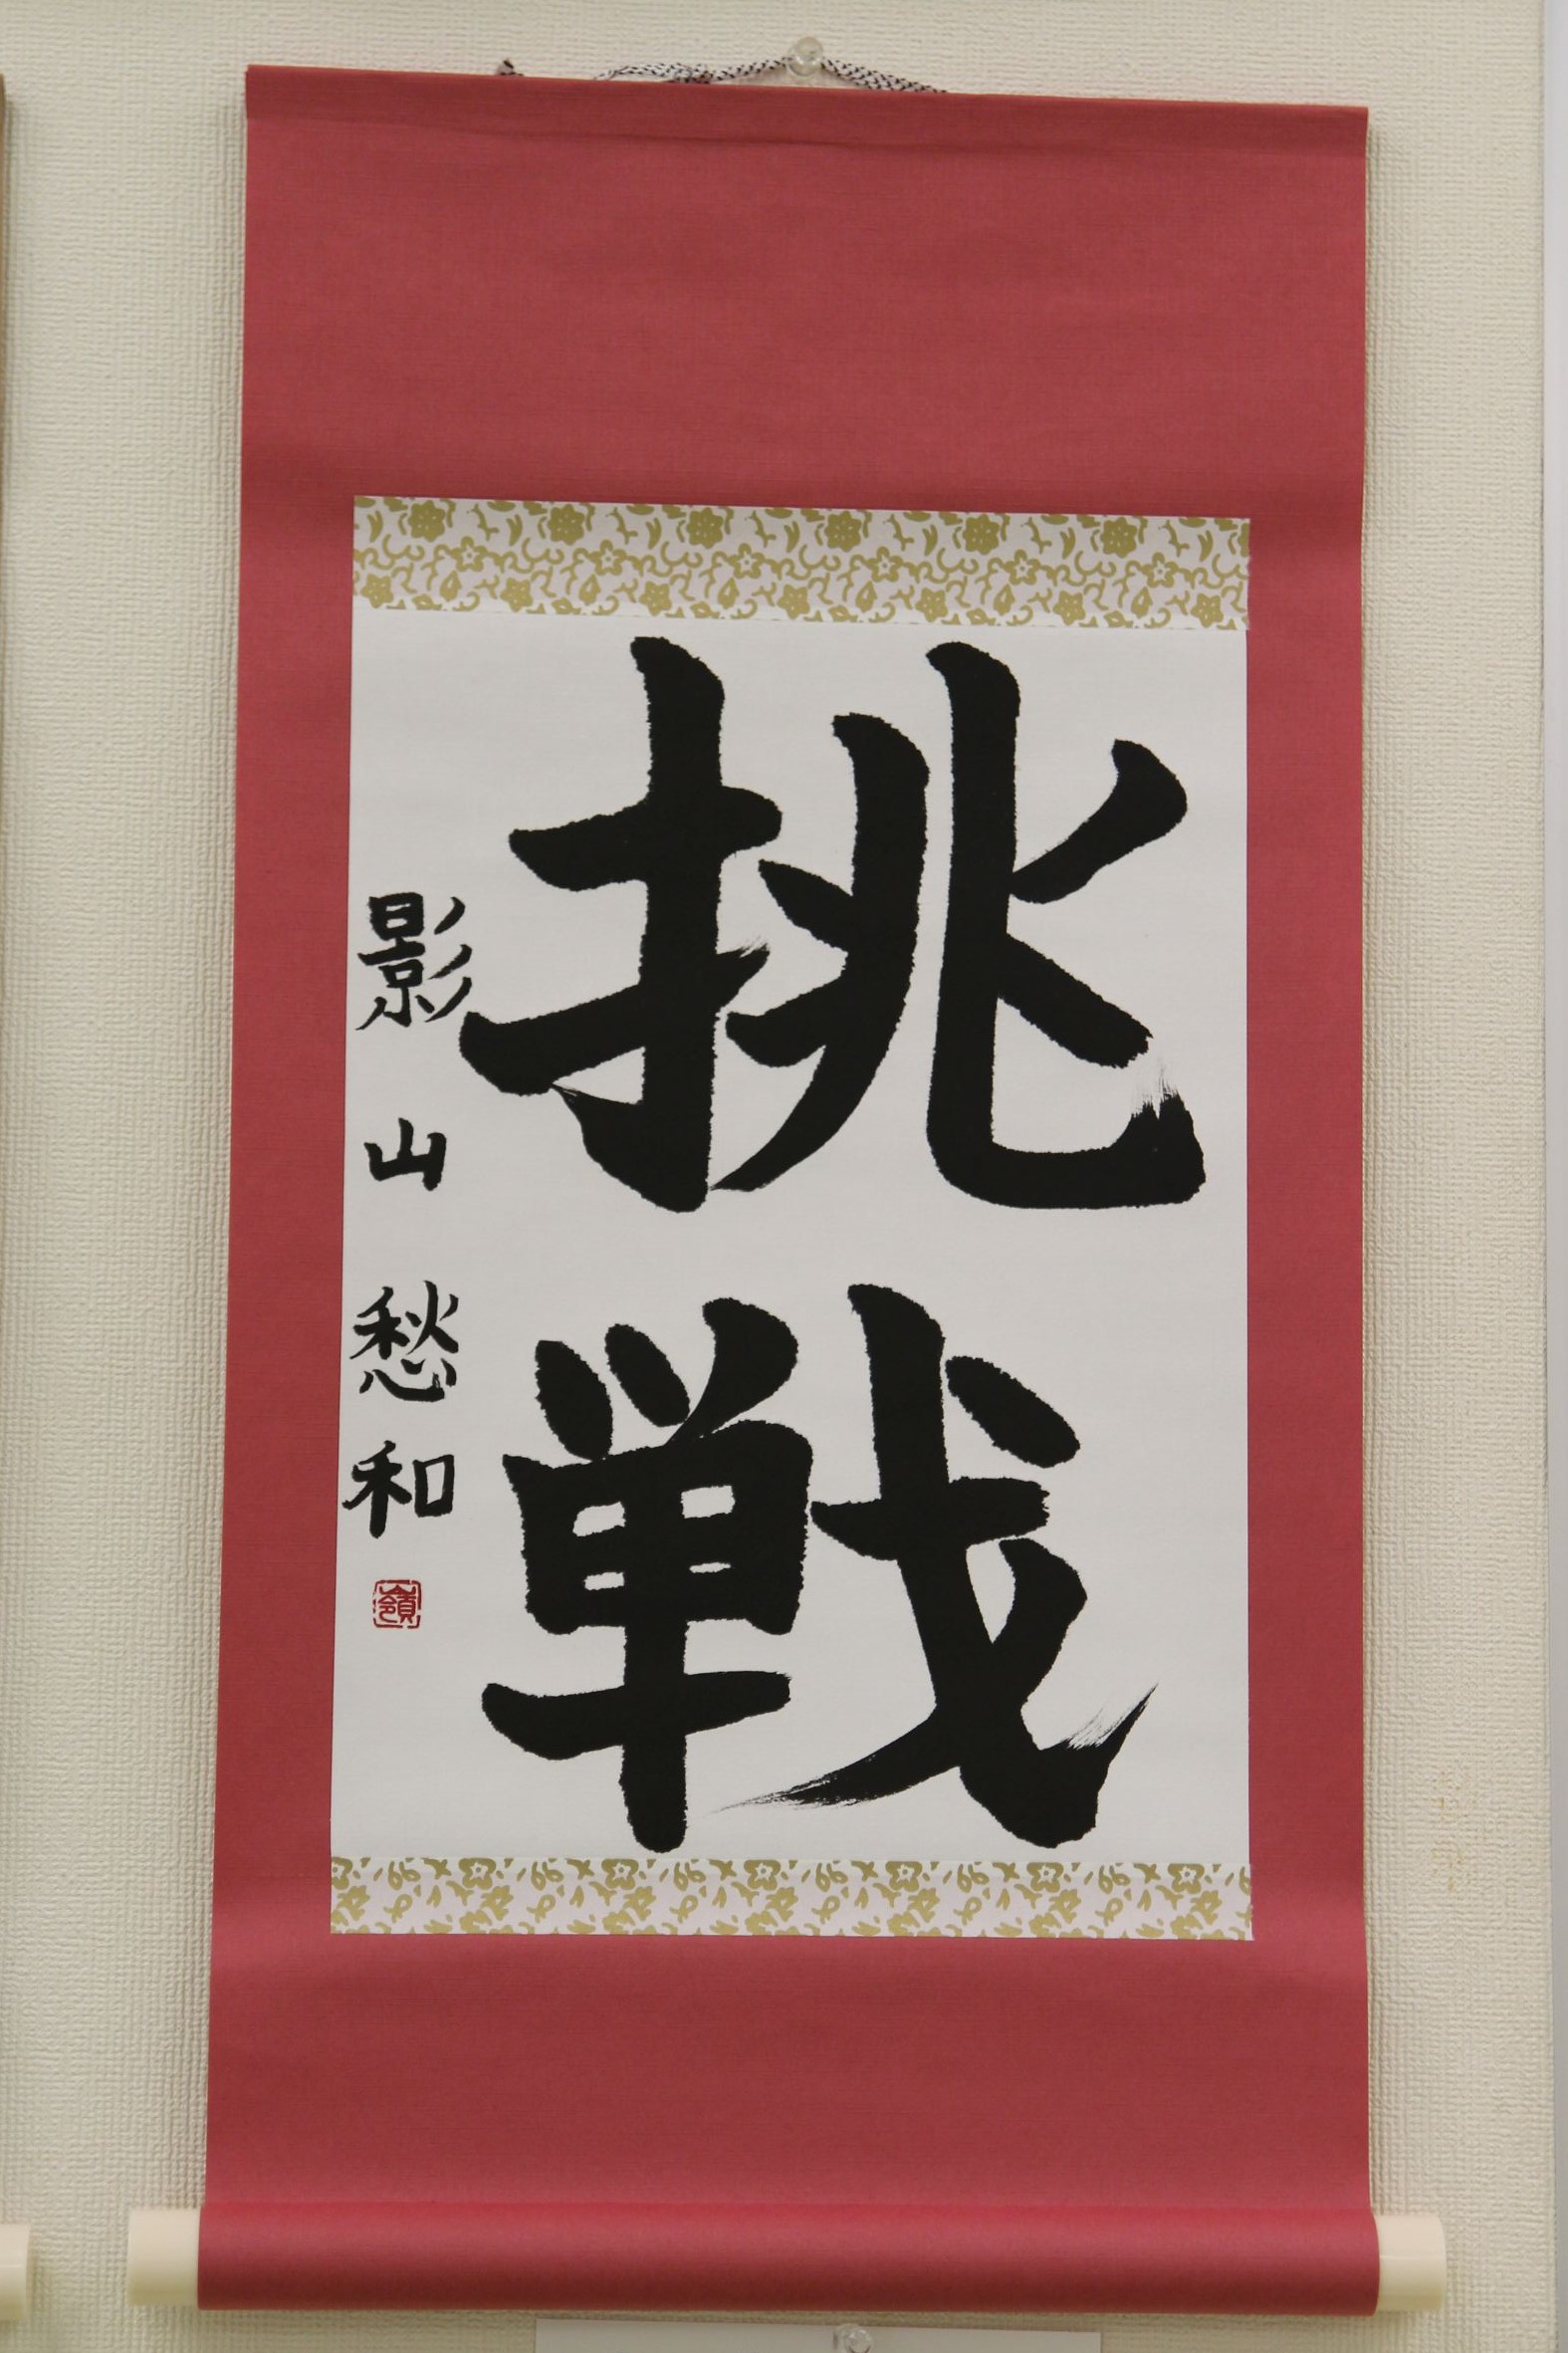 挑戦
影山愁和
嶺